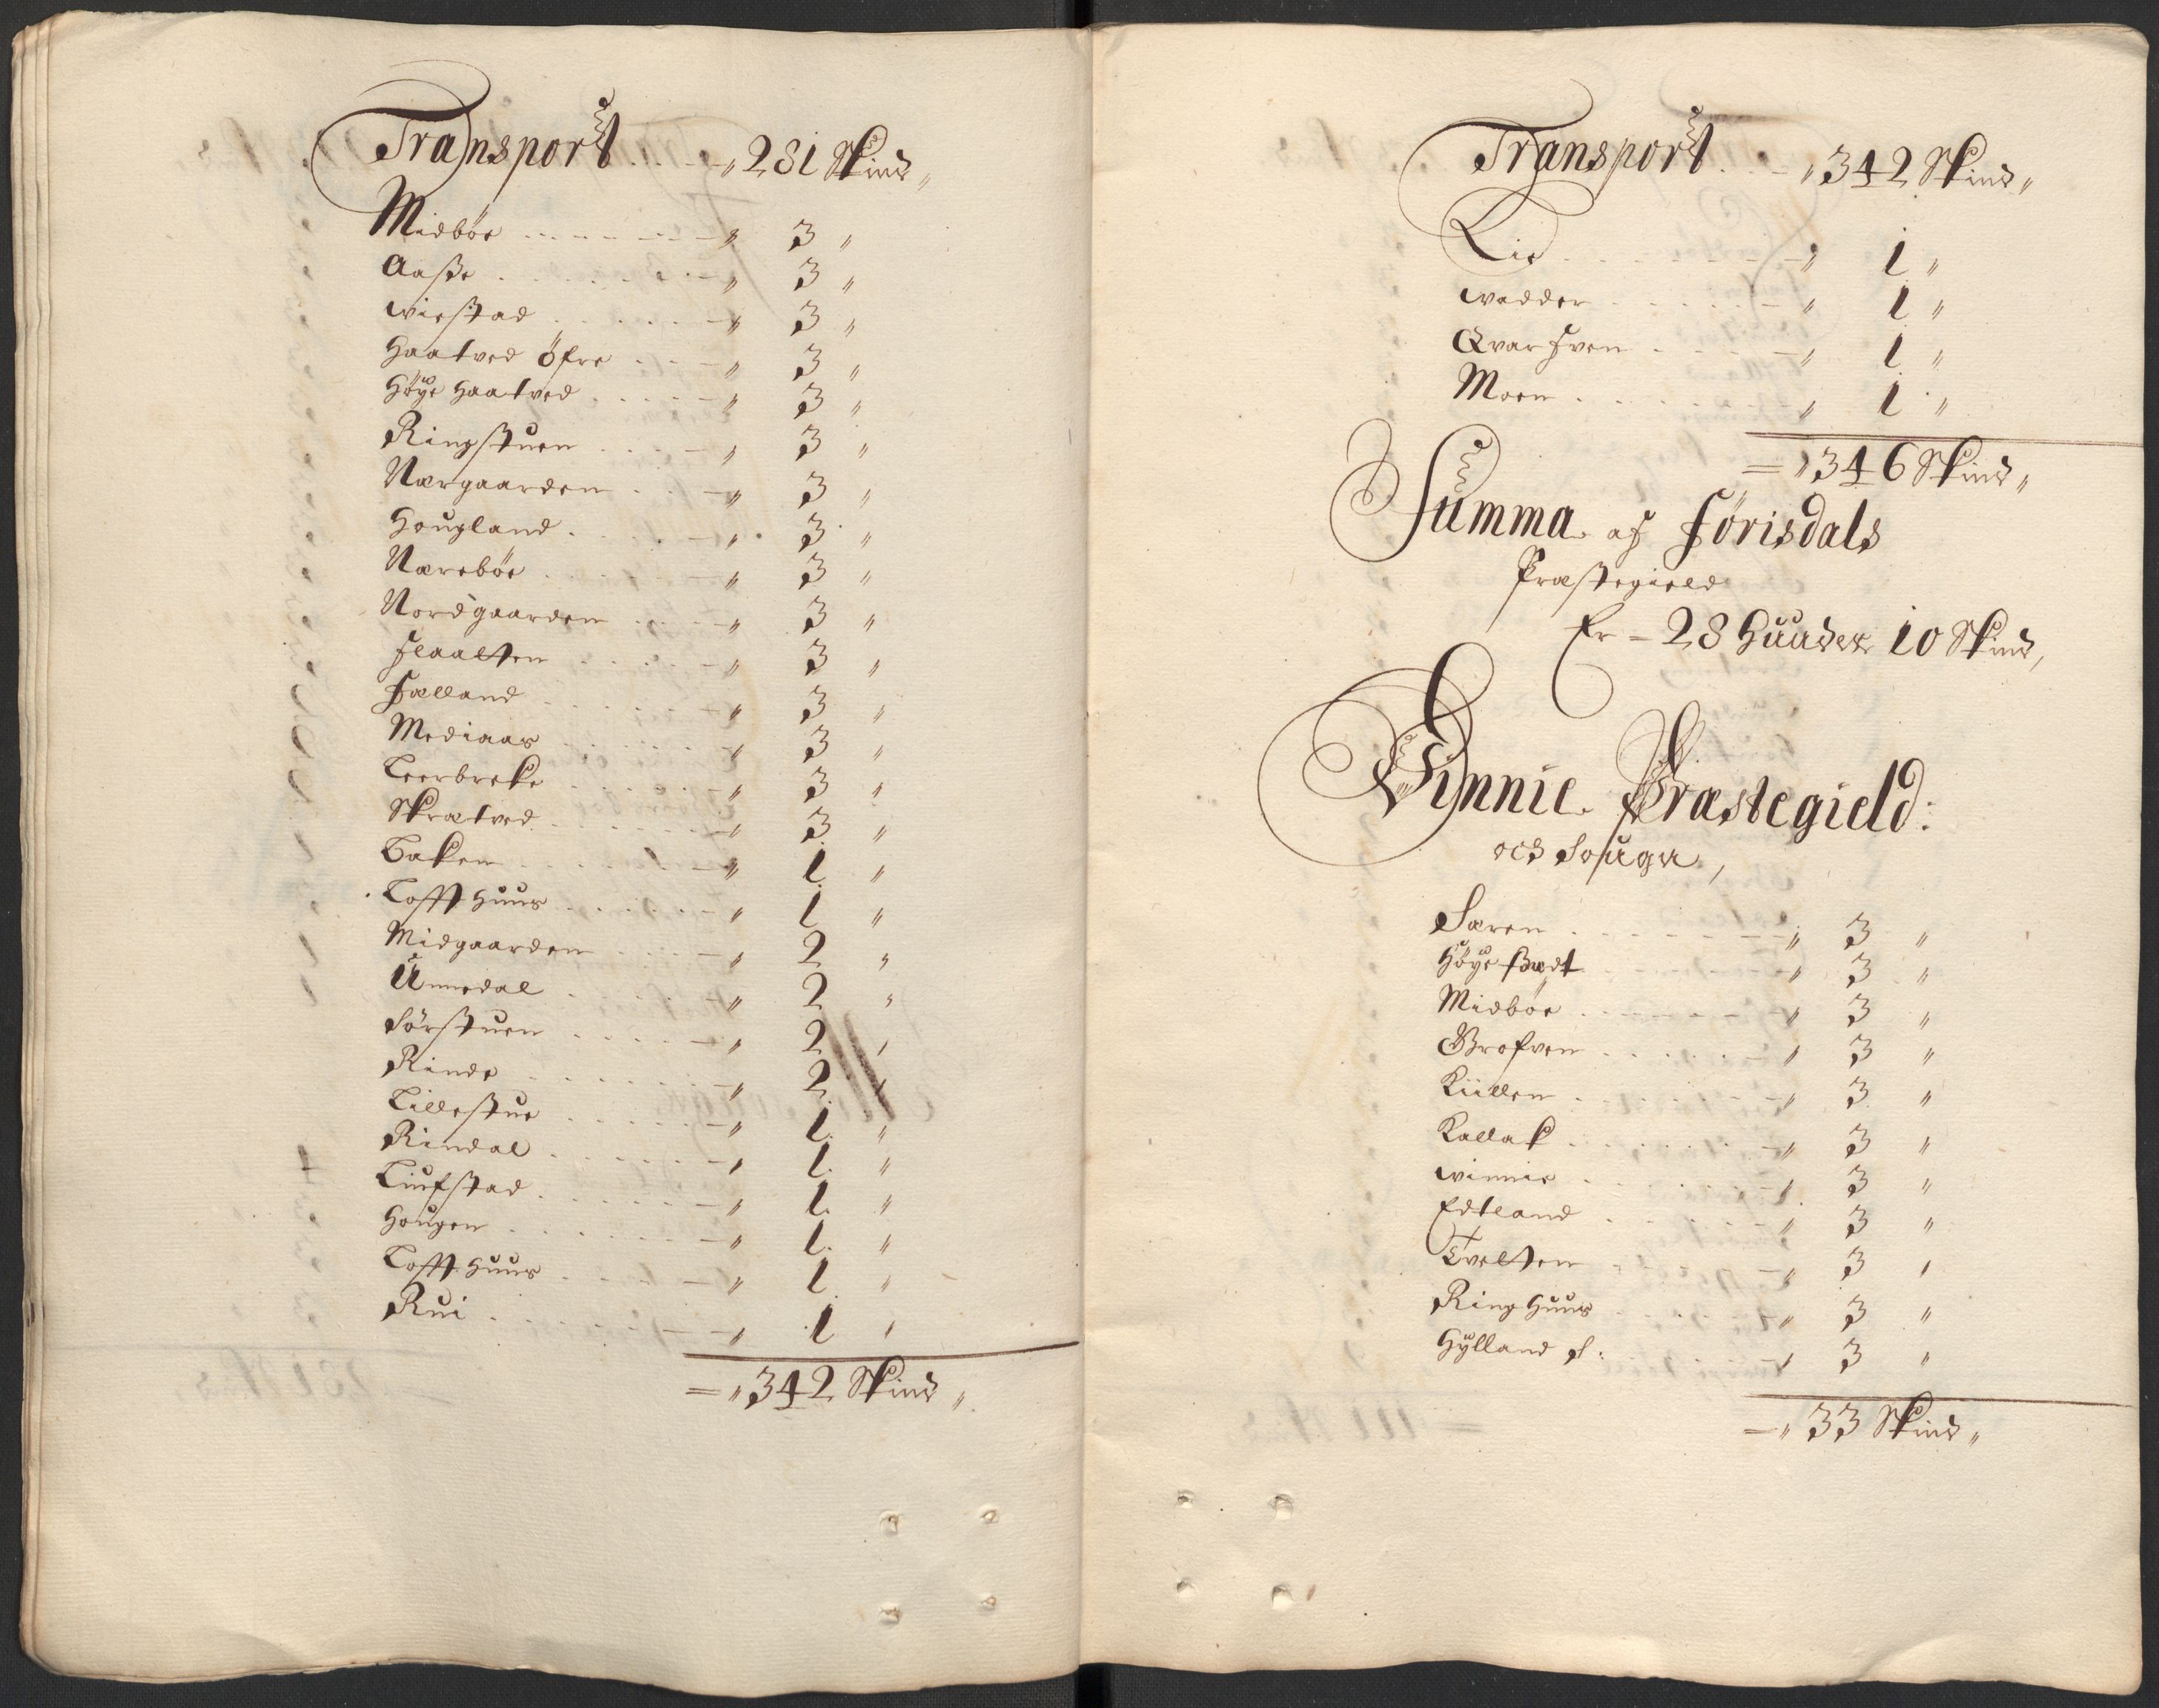 Transport . . . . „ 281 Skind „
Midböe . . . . „ 3 „
Aasse . . . . „ 3 „
wiestad . . . . „ 3 „
Haatved öfre . . . „ 3 „
Höye Haatved . . . . „ 3 „
Ringstuen . . . . „ 3 „
Nærgaarden . . . „ 3 „
Hougland . . . . „ 3 „
Næreböe . . . . „ 3 „
Nordgaarden . . . . „ 3 „
Flaatten . . . . „ 3 „
Fælland . . . . „ 3 „
Mediaas . . . . „ 3 „
Leerbrekke . . . . „ 3 „
Skrætved . . . . „ 3 „
Baken . . . . „ 1 „
Loffthuus . . . . „ 1 „
Midgaarden . . . . „ 2 „
Unnedal . . . . „ 2 „
Sörstuen . . . . „ 2 „
Rinde . . . . „ 2 „
Lillestue . . . . „ 1 „
Rindal . . . . „ 1 „
Liufstad . . . . „ 1 „
Hougen . . . . „ 1 „
Loffthuus . . . . „ 1 „
Rui . . . . „ 1 „
= „ 342 Skind „
Transport . . . „ 342 Skind „
Lie . . . . „ 1 „
wadder . . . . „ 1 „
Qvarfven . . . . „ 1 „
Moen . . . . „ 1 „
= „ 346 Skind „
Summa af Förisdals
Præstegield
Er – 28 Huuder 10 Skind,
Vinnie Præstegield:
och Sougn,
Særen . . . . „ 3 „
Höyesædt . . . . „ 3 „
Midböe . . . . „ 3 „
Grofven . . . . „ 3 „
Kiillen . . . . „ 3 „
Kallak . . . . „ 3 „
winnie . . . . „ 3 „
Edtland . . . . „ 3 „
Tvelten . . . . „ 3 „
Ringhuus . . . . „ 3 „
Hylland S: . . . . „ 3 „
= „ 33 Skind „